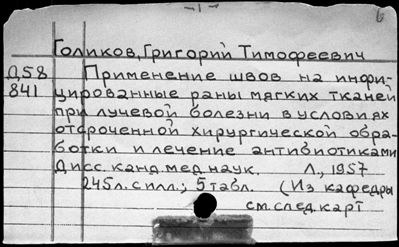 -1-
6
Голиков, Григорий Тимофеевич
Д58 Применение швов на инфи-
841 цированные раны мягких тканей
при лучевой болезни в условиях
отсроченной хирургической обра-
ботки и лечение антибиотиками
Дисс. канд. мед. наук. Л., 1957
245 л. с илл.; 5 табл. (Из кафедры
см. след. карт